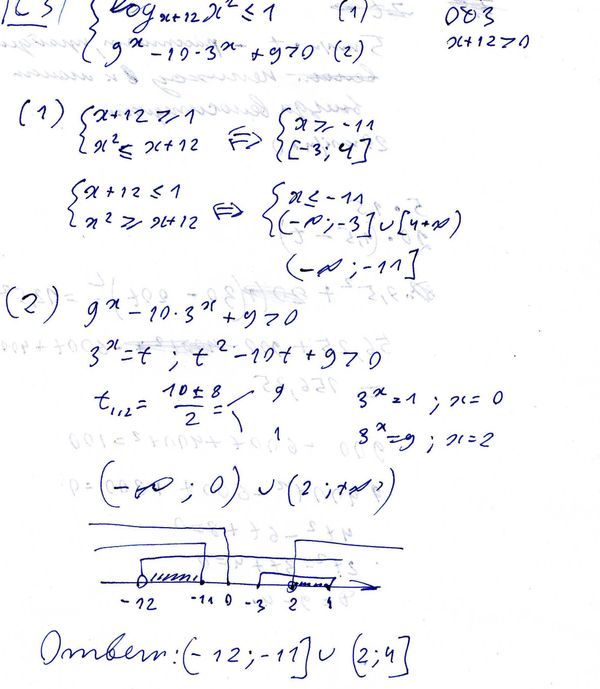 C3
{ log_{x+12} x² ≤ 1 (1) ОДЗ
{ 9^x - 10·3^x + 9 > 0 (2) x+12>0
(1) { x+12 ≥ 1 ⇔ { x ≥ -11
{ x² ≤ x+12 { [-3; 4]
{ x+12 ≤ 1 ⇔ { x ≤ -11
{ x² ≥ x+12 { (-∞; -3] ∪ [4 +∞)
(-∞; -11]
(2) 9^x - 10·3^x + 9 > 0
3^x = t ; t² - 10t + 9 > 0
t₁,₂ = (10 ± 8)/2 = 9 3^x = 1 ; x = 0
1 3^x = 9 ; x = 2
(-∞ ; 0) ∪ (2 ; +∞)
-12 -11 0 -3 2 4
Ответ: (-12; -11] ∪ (2; 4]